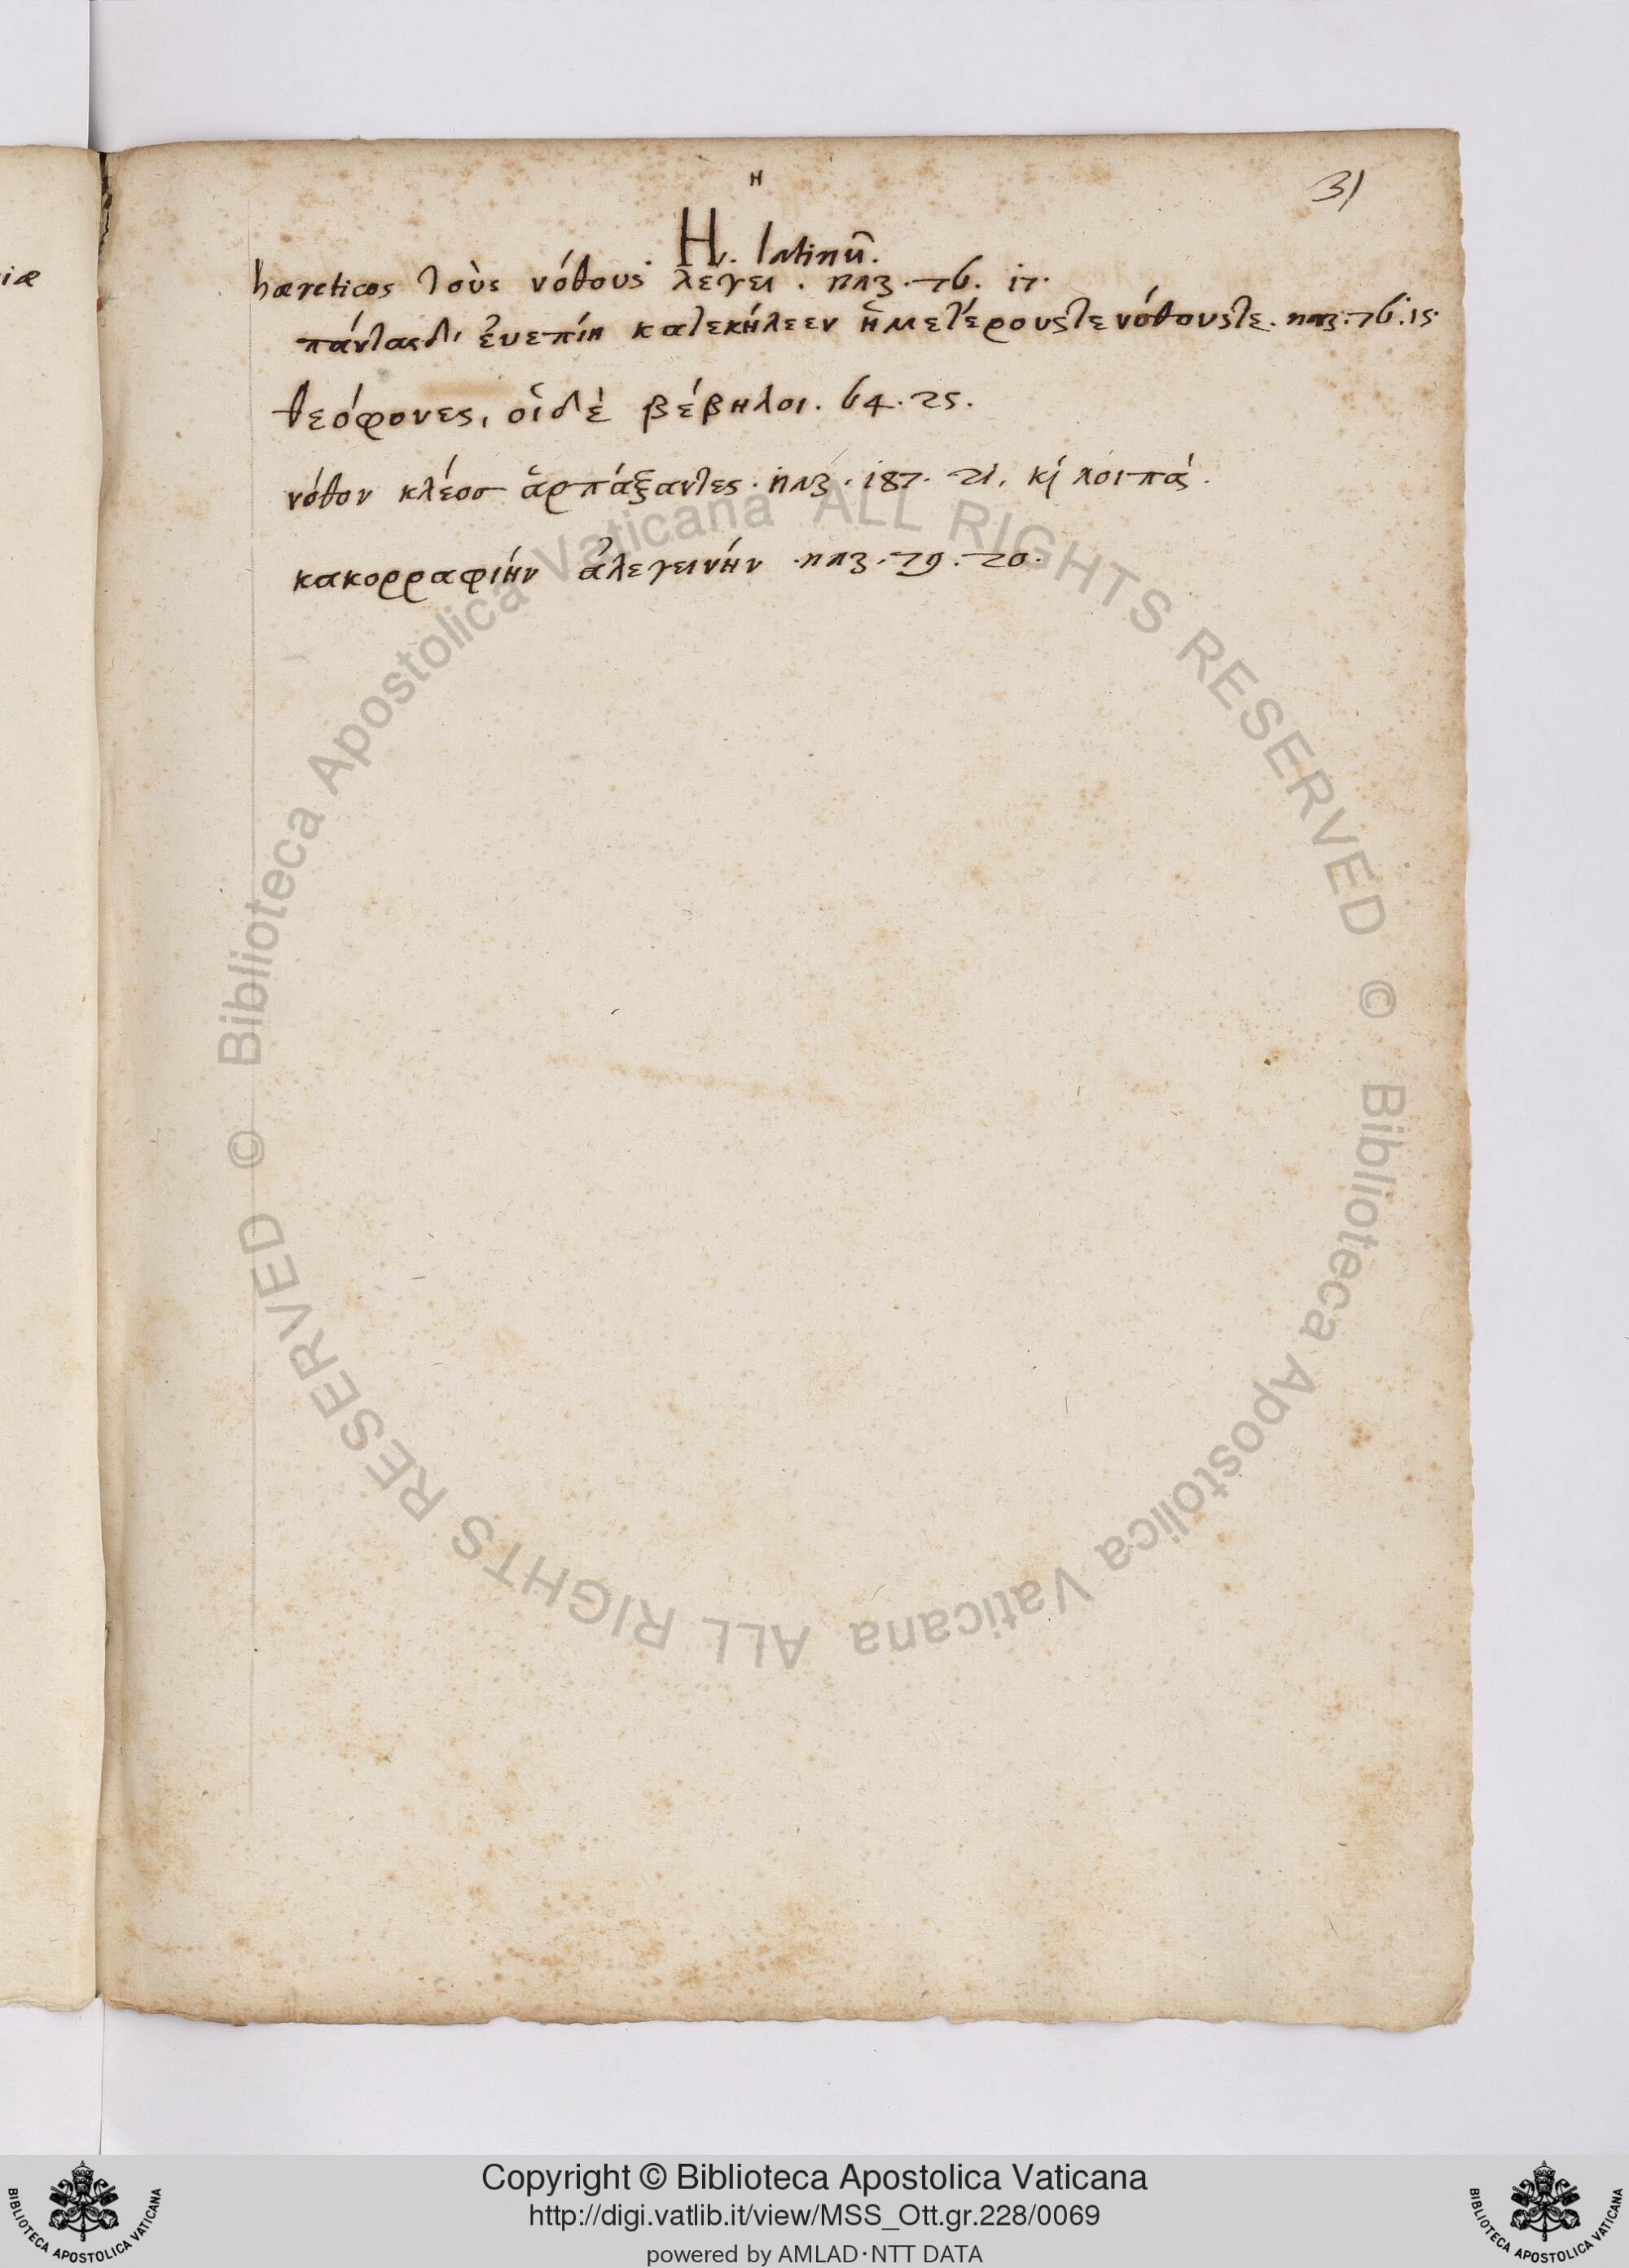 iæ
н
31
. H. latinū.
hæreticos τοὺς νόθους λεγει . παζ. 76. 17.
πάνταςδ' ἐυεπίη κατεκήλεεν ἡμετέρουςτε νόθουςτε. παζ. 76. 15.
θεόφονες, οἱδὲ βέβηλοι. 64. 25.
νόθον κλέοσ ἁρπάξαντες. παζ. 187. 21. κὶ λοιπά.
κακορραφιήν ἀλεγεινήν . παζ. 79. 20.
© Biblioteca Apostolica Vaticana ALL RIGHTS RESERVED
© Biblioteca Apostolica Vaticana ALL RIGHTS RESERVED
Copyright © Biblioteca Apostolica Vaticana
http://digi.vatlib.it/view/MSS_Ott.gr.228/0069
powered by AMLAD·NTT DATA
BIBLIOTECA APOSTOLICA VATICANA
BIBLIOTECA APOSTOLICA VATICANA